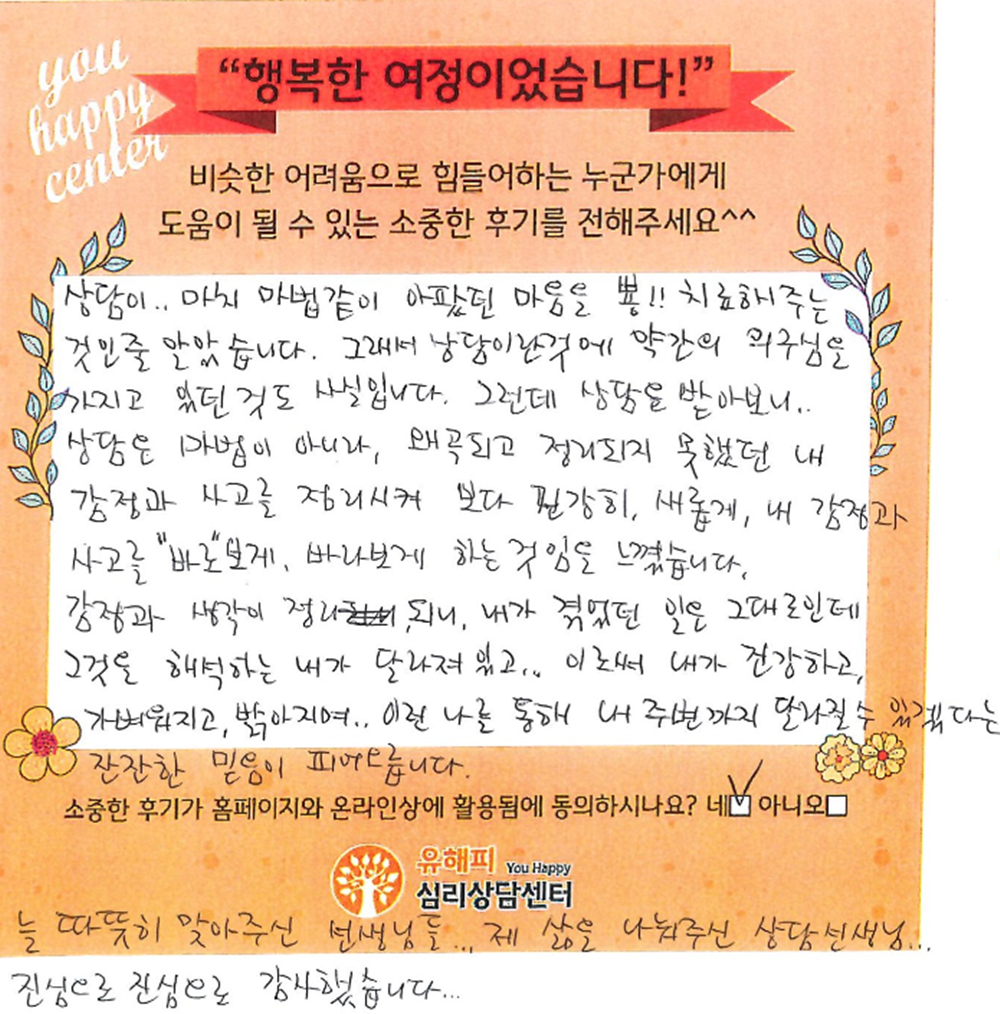 you
happy
center
“행복한 여정이었습니다!”
비슷한 어려움으로 힘들어하는 누군가에게
도움이 될 수 있는 소중한 후기를 전해주세요^^
상담이.. 마치 마법같이 아팠던 마음을 뿅!! 치료해주는
것인줄 알았습니다. 그래서 상담이란것에 약간의 의구심을
가지고 있던것도 사실입니다. 그런데 상담을 받아보니..
상담은 마법이 아니라, 왜곡되고 정리되지 못했던 내
감정과 사고를 정리시켜 보다 건강히, 새롭게, 내 감정과
사고를 "바로"보게, 바라보게 하는 것임을 느꼈습니다.
감정과 생각이 정리되니, 내가 겪었던 일은 그대로인데
그것을 해석하는 내가 달라져 있고.. 이로써 내가 건강하고,
가벼워지고, 밝아지며.. 이런 나를 통해 내 주변까지 달라질 수 있겠다는
잔잔한 믿음이 피어오릅니다.
소중한 후기가 홈페이지와 온라인상에 활용됨에 동의하시나요? 네☑ 아니오□
유해피 You Happy
심리상담센터
늘 따뜻히 맞아주신 선생님들... 제 삶을 나눠주신 상담선생님...
진심으로 진심으로 감사했습니다...